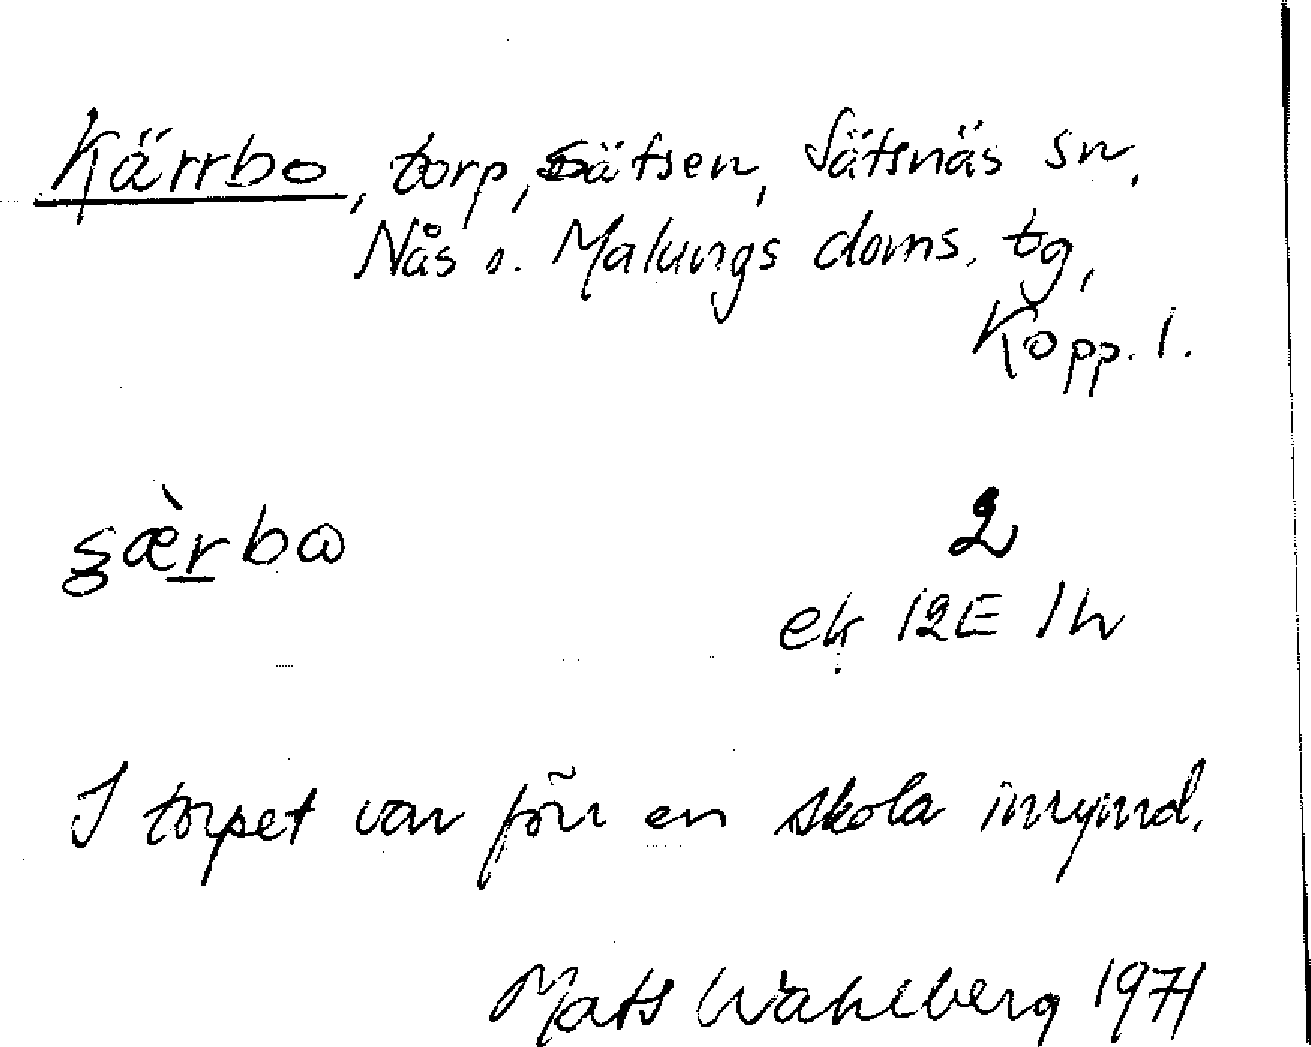 Kärrbo, torp, Sätsen, Sätsnäs sn,
Nås o. Malungs doms. tg,
Kopp. l.
2
ek 12E 1h
I torpet var förr en skola inrymd.
Mats Wahlberg 1971